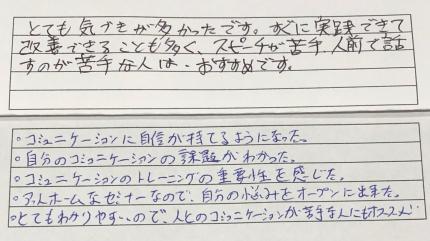 とても気づきが多かったです。すぐに実践できて
改善できることも多く、スピーチが苦手、人前で話
すのが苦手な人は、おすすめです。
・コミュニケーションに自信が持てるようになった。
・自分のコミュニケーションの課題がわかった。
・コミュニケーションのトレーニングの重要性を感じた。
・アットホームなセミナーなので、自分の悩みをオープンに出来た。
・とてもわかりやすいので、人とのコミュニケーションが苦手な人にもオススメ